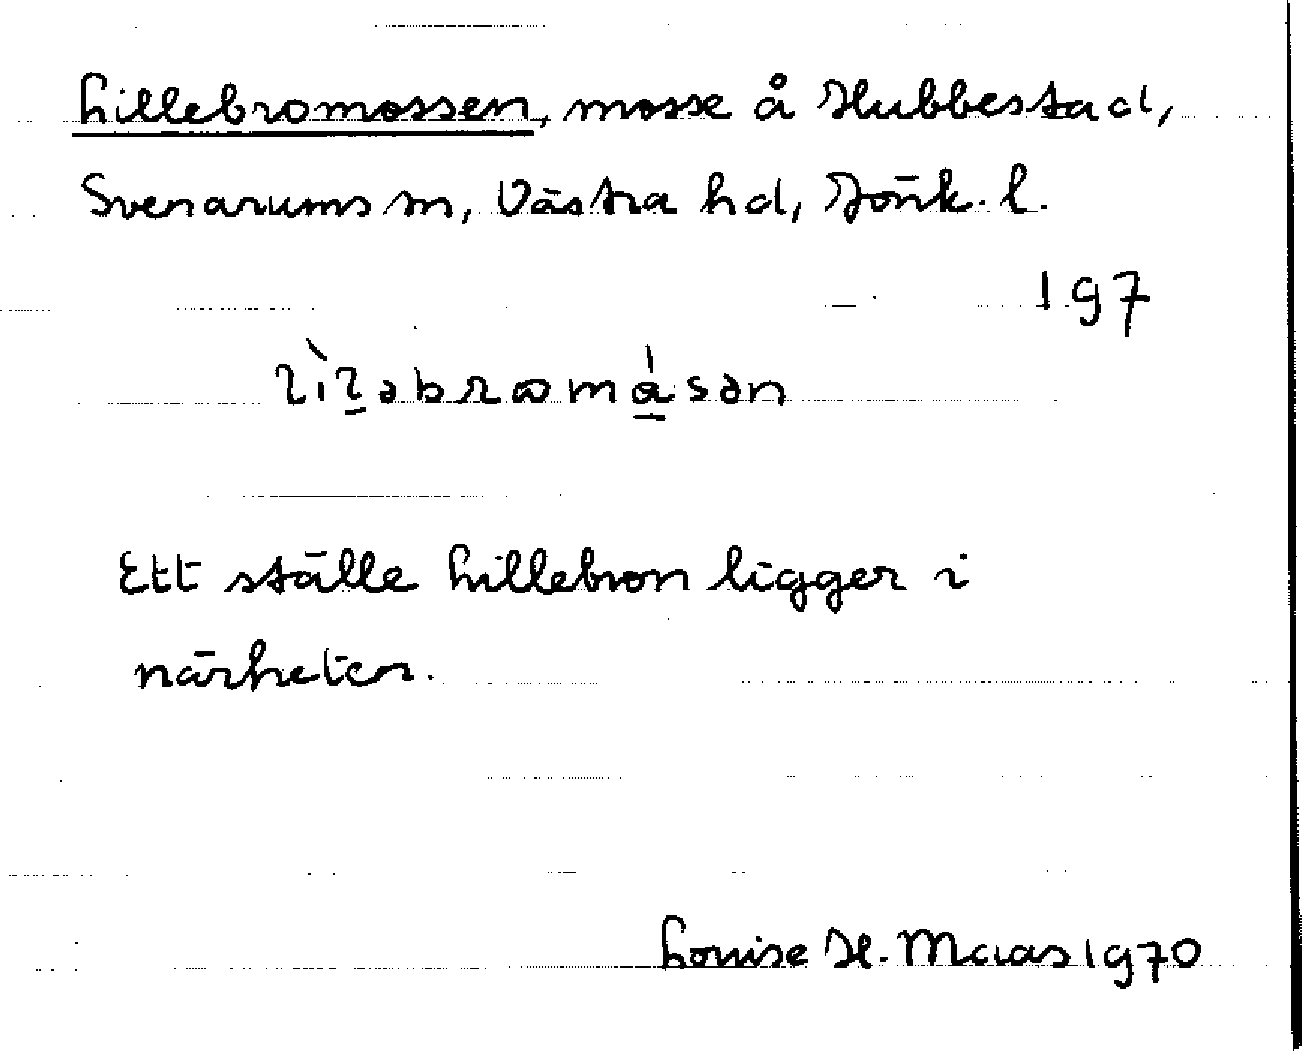 Lillebromossen, mosse å Hubbestad,
Svenarums sn, Västra hd, Jönk. l.
197
lìl̲əbrωmá̲sən
Ett ställe Lillebron ligger i
närheten.
Louise H. Maas 1970